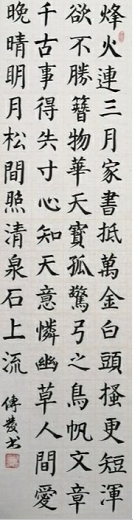 烽火連三月家書抵萬金白頭搔更短渾
欲不勝簪物華天寶孤驚弓之鳥帆文章
千古事得失寸心知天意憐幽草人間愛
晚晴明月松間照清泉石上流